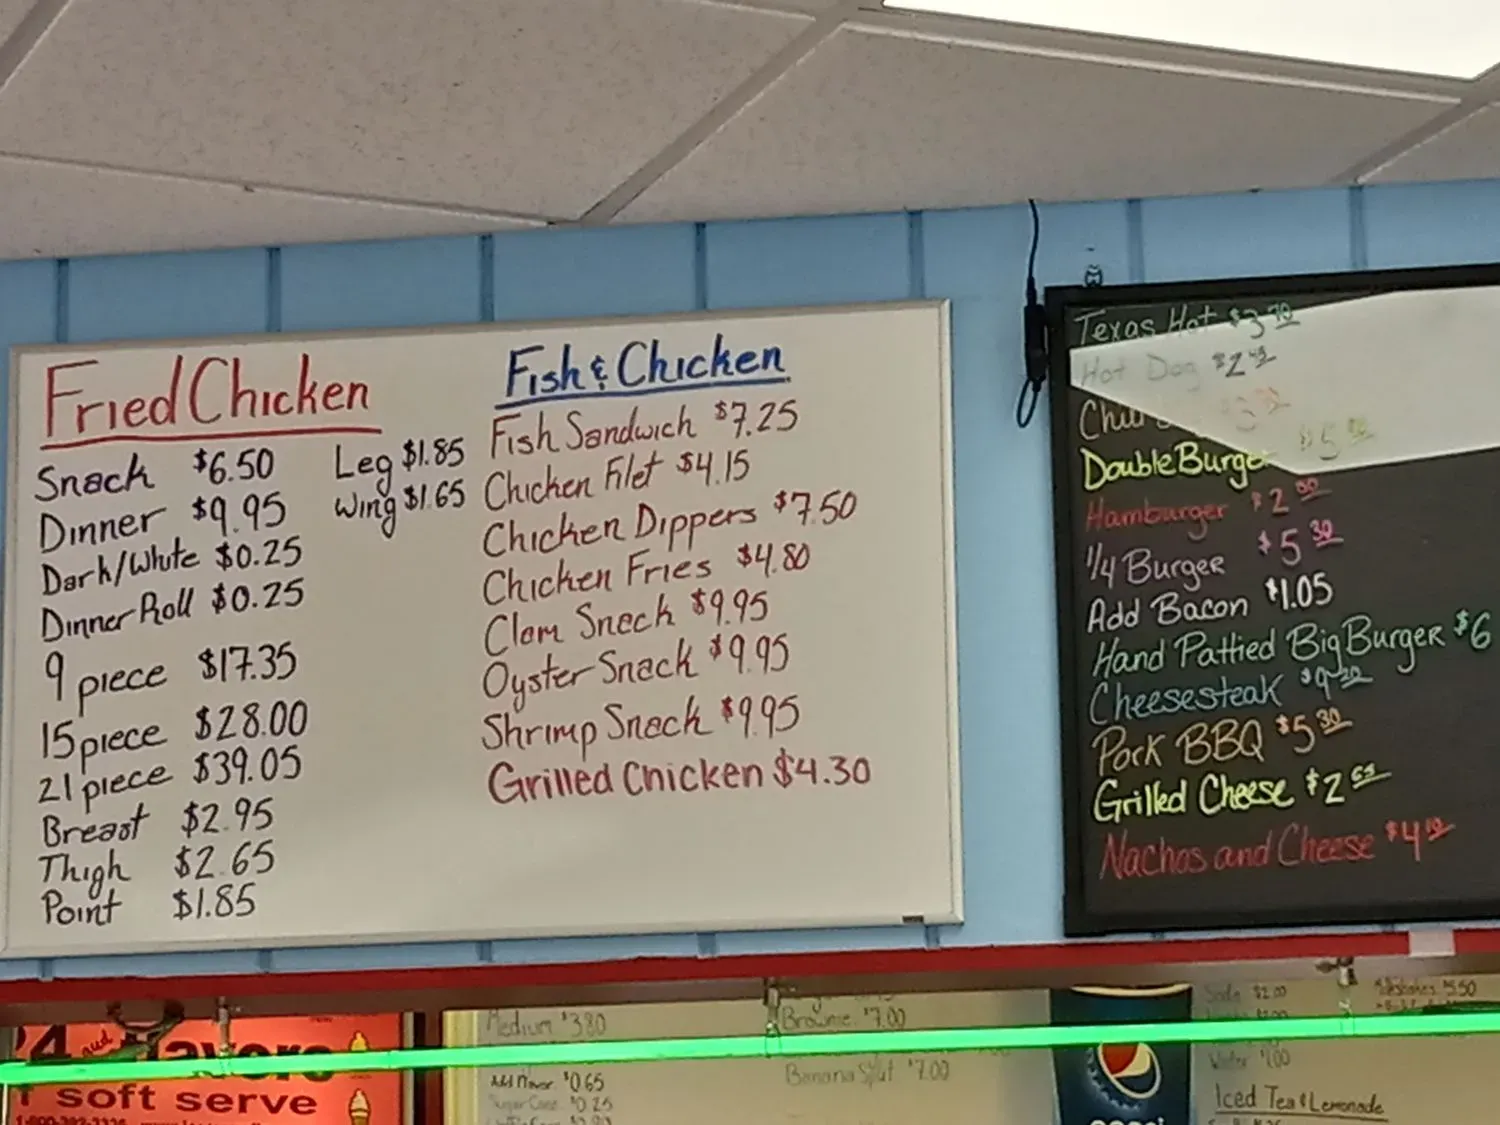 Fried Chicken
Snack $6.50
Dinner $9.95
Dark/White $0.25
Dinner Roll $0.25
9 piece $17.35
15 piece $28.00
21 piece $39.05
Breast $2.95
Thigh $2.65
Point $1.85
Leg $1.85
Wing $1.65
Fish & Chicken
Fish Sandwich $7.25
Chicken Filet $4.15
Chicken Dippers $7.50
Chicken Fries $4.80
Clam Snack $9.95
Oyster Snack $9.95
Shrimp Snack $9.95
Grilled Chicken $4.30
Texas Hot $3.70
Hot Dog $2
Double Burger $5
Hamburger $2
1/4 Burger $5.30
Add Bacon $1.05
Hand Pattied Big Burger $6
Cheesesteak $9.20
Pork BBQ $5.30
Grilled Cheese $2
Nachos and Cheese $4.10
4 and flavors
soft serve
Medium $3.80
Add Flavor $0.65
Sugar Cone $0.25
Brownie $7.00
Banana Split $7.00
Soda $2.00
Milkshakes $5.50
Water $1.00
Iced Tea & Lemonade
pepsi